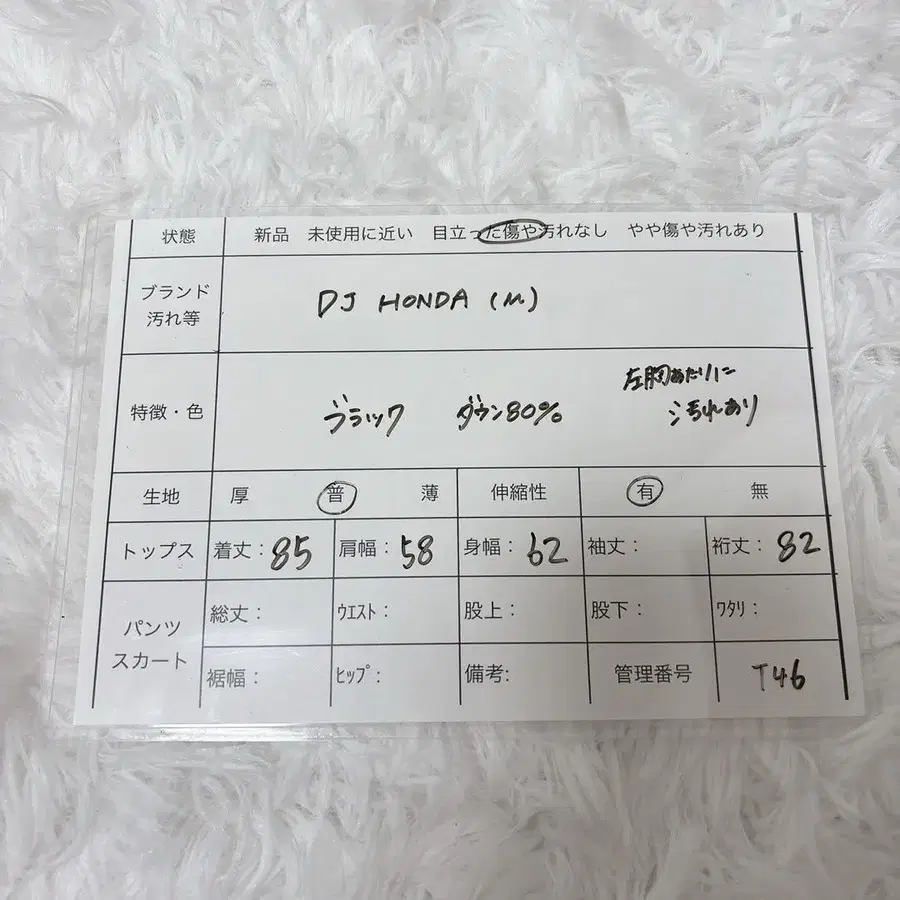 状態 新品 未使用に近い 目立った傷や汚れなし やや傷や汚れあり
ブランド
汚れ等
DJ HONDA (M)
特徴・色 ブラック ダウン80% 左胸あたりに
汚れあり
生地 厚 普 薄 伸縮性 有 無
トップス 着丈:85 肩幅:58 身幅:62 袖丈: 裄丈:82
パンツ
スカート
総丈: ウエスト: 股上: 股下: ワタリ:
裾幅: ヒップ: 備考: 管理番号 T46